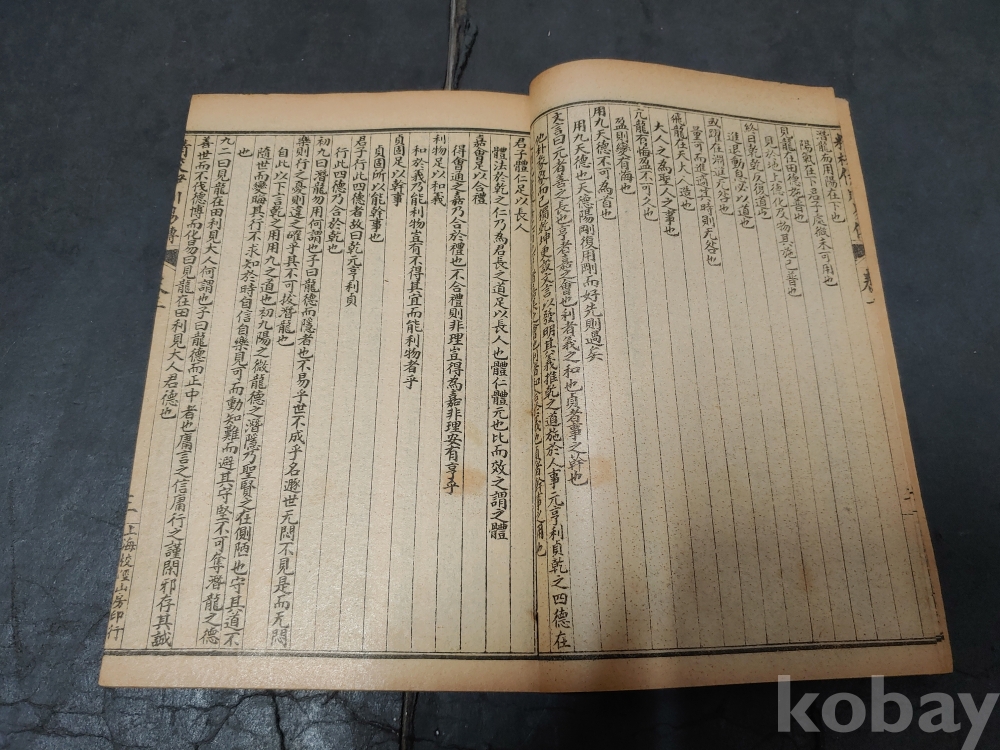 潛龍勿用陽在下也
陽氣在下君子處微未可用也
見龍在田德施普也
見於地上德化及物其施已普也
終日乾乾反復道也
進退動息必以道也
或躍在淵進无咎也
量可而進適其時則无咎也
飛龍在天大人造也
大人之為聖人之事也
亢龍有悔盈不可久也
盈則變有悔也
用九天德不可為首也
用九天德也天德陽剛復用剛而好先則過矣
文言曰元者善之長也亨者嘉之會也利者義之和也貞者事之幹也
他卦彖象而已獨乾坤更設文言以發明其義推乾之道施於人事元亨利貞乾之四德在
君子體仁足以長人
體法於乾之仁乃為君長之道足以長人也體仁體元也比而效之謂之體
嘉會足以合禮
得會通之嘉乃合於禮也不合禮則非理豈得為嘉非理安有亨乎
利物足以和義
和於義乃能利物豈有不得其宜而能利物者乎
貞固足以幹事
貞固所以能幹事也
君子行此四德者故曰乾元亨利貞
行此四德乃合於乾也
初九曰潛龍勿用何謂也子曰龍德而隱者也不易乎世不成乎名遯世无悶不見是而无悶
樂則行之憂則違之確乎其不可拔潛龍也
自此以下言乾之用用九之道也初九陽之微龍德之潛隱乃聖賢之在側陋也守其道不
隨世而變晦其行不求知於時自信自樂見可而動知難而避其守堅不可奪潛龍之德
也
九二曰見龍在田利見大人何謂也子曰龍德而正中者也庸言之信庸行之謹閑邪存其誠
善世而不伐德博而化易曰見龍在田利見大人君德也
二 上海校經山房印行
kobay